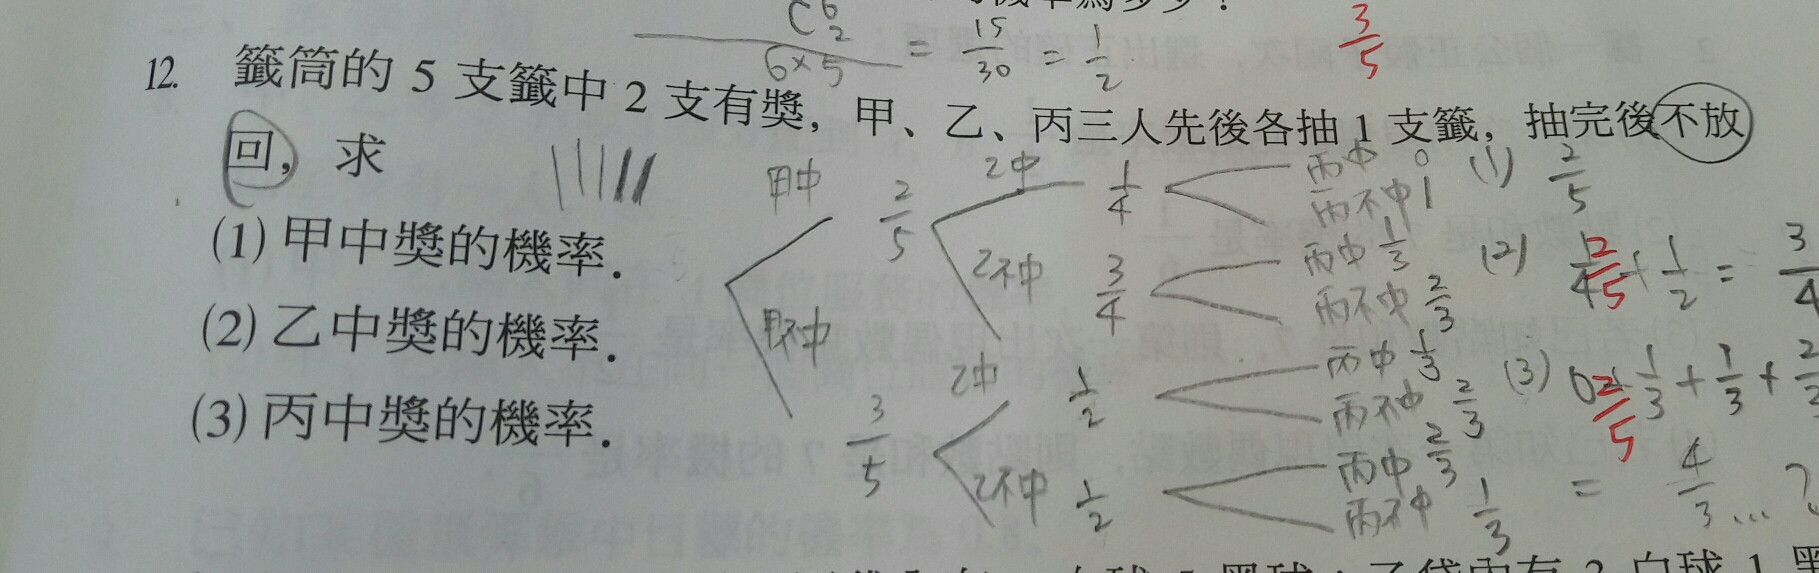 C⁶₂ / 6×5 = 15/30 = 1/2
3/5
12. 籤筒的 5 支籤中 2 支有獎，甲、乙、丙三人先後各抽 1 支籤，抽完後不放
回，求
(1) 甲中獎的機率．
(2) 乙中獎的機率．
(3) 丙中獎的機率．
甲中 2/5
乙中 1/4
丙中 0
丙不中 1
乙不中 3/4
丙中 1/3
丙不中 2/3
甲不中 3/5
乙中 1/2
丙中 1/3
丙不中 2/3
乙不中 1/2
丙中 2/3
丙不中 1/3
(1) 2/5
(2) 1/4 + 1/2 = 3/4
2/5
(3) 0 + 1/3 + 1/3 + 2/3
2/5
= 4/3 ... ?